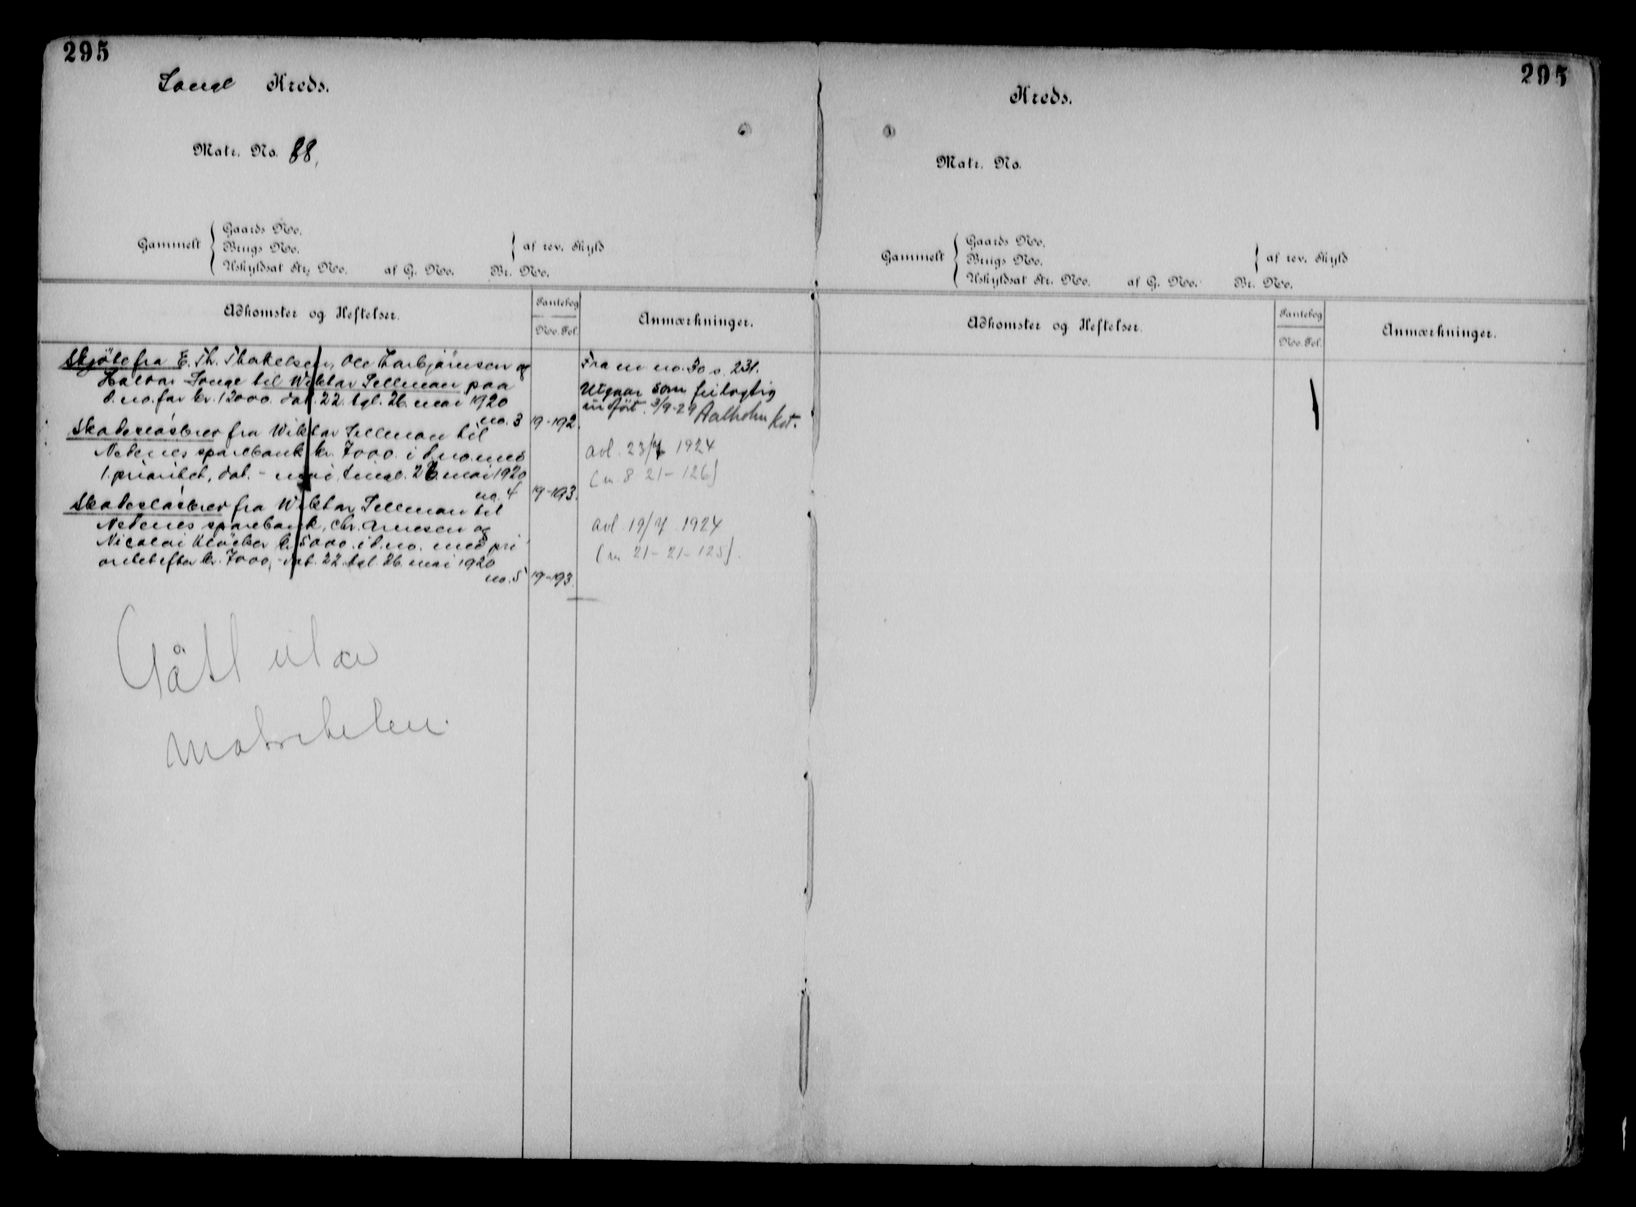 295
Songe Kreds.
Matr. No. 88,
Gammelt
Gaards No.
Brugs No.
Uskyldsat Str. No. af G. No. Br. No.
af rev. Skyld
Adkomster og Heftelser.
Pantebog
No. Fol.
Anmærkninger.
Skjöte fra E. Th. Thorkelsen, Ole Torbjörnsen og
Halvor Songe til Wiktor Sellman paa
d. no. for kr. 12000. dat. 22. tgl. 26. mai 1920
no. 3 19-192.
Skadeslösbrev fra Wiktor Sellman til
Nedenes sparebank kr. 7000. i d. no. med
1. prioritet, dat. - mai, tingl. 26. mai 1920
no. 4 19-193.
Skadeslösbrev fra Wiktor Sellman til
Nedenes sparebank, Chr. Arnesen og
Nicolai Klöcker kr. 5000. i d. no. med pri
oritet efter kr. 7000, dat. 22. tgl 26. mai 1920
no. 5 19-193.
Fra m no. 30 s. 231.
Utgaar som feilagtig
indfört. 3/9-29 Aalholm kst.
avl. 23/7 1924
(n. 8 21-126)
avl 19/7 1924
(n. 21-21-125).
Gått ut av
matrikelen.
295
Kreds.
Matr. No.
Gammelt
Gaards No.
Brugs No.
Uskyldsat Str. No. af G. No. Br. No.
af rev. Skyld
Adkomster og Heftelser.
Pantebog
No. Fol.
Anmærkninger.